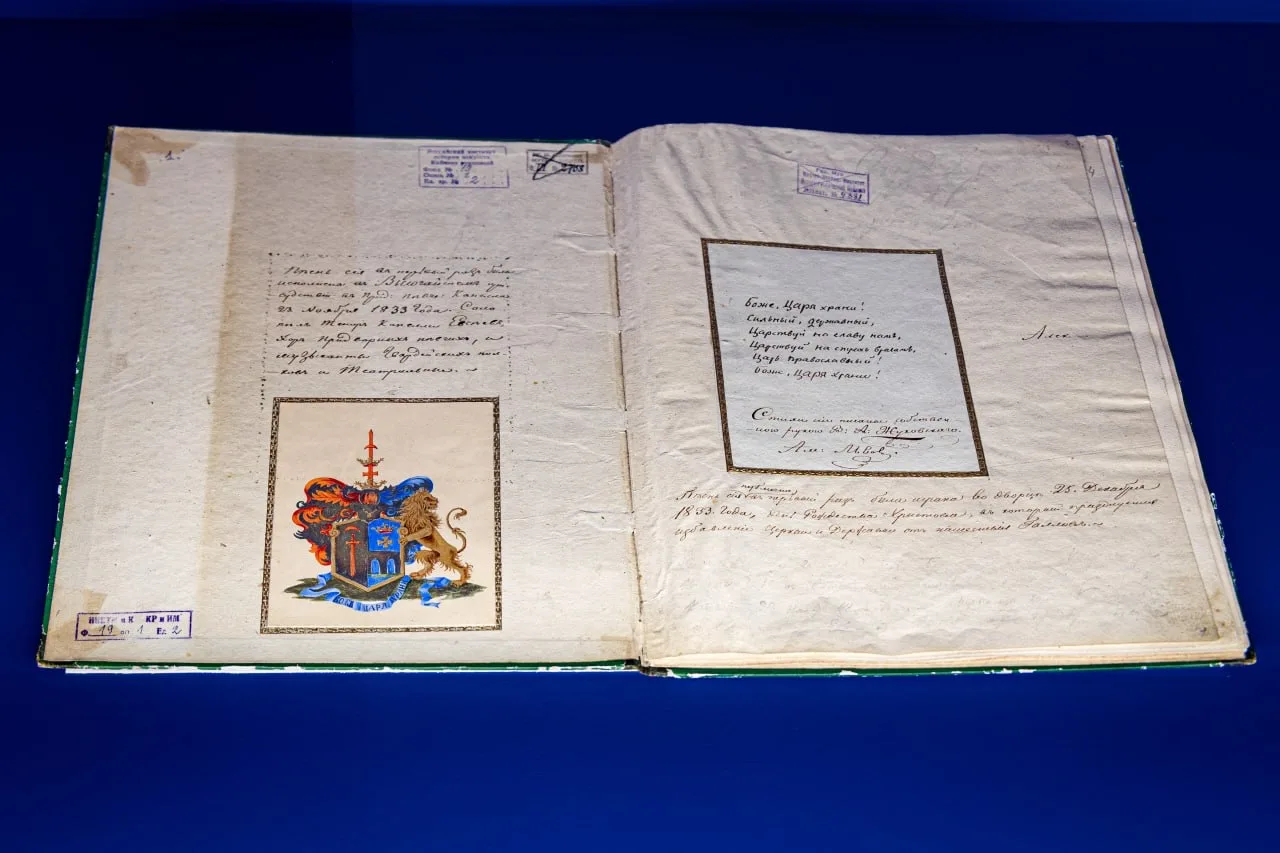 1.
Российский институт
истории искусств
Кабинет рукописей
Фонд № 19
Опись № 1
Ед. хр. № 2
№ 2708
Песнь сия въ первый разъ была
исполнена въ Высочайшемъ при-
судствіи въ прид: певч: Капелле
23 Ноября 1833 года. Само
Хоръ придворныхъ певчихъ, и
музыканты Гвардейскихъ пол-
ковъ и Театральные.
БОЖЕ ЦАРЯ ХРАНИ
КР и ИМ
Ф. 19 оп 1 Ед 2
4
Боже, Царя храни!
Сильный, державный,
Царствуй на славу намъ,
Царствуй на страхъ врагамъ,
Царь православный!
Боже, Царя храни!
Стихи сіи писаны собствен-
ною рукою В: А: Жуковскаго.
Ал: Львовъ.
Алек.
Песнь сія въ публично первый разъ была играна во дворце 25. Декабря
1833 года, день Рождества Христова, въ который празднуется
избавленіе Церкви и Державы отъ нашествія Галловъ.